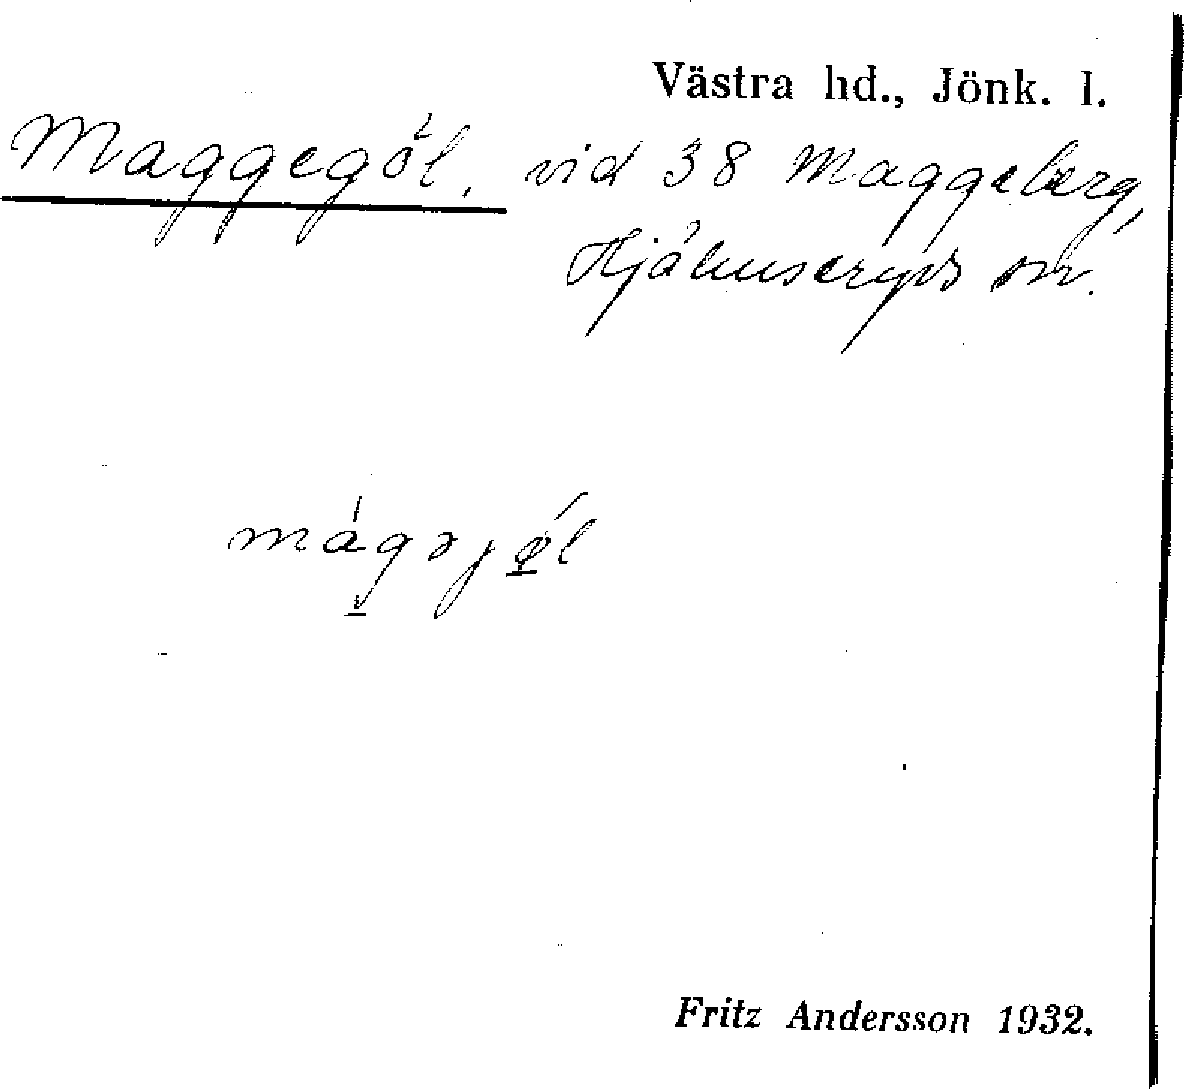 Västra hd., Jönk. l.
Maggegöl. vid 38 Maggeberg,
Hjälmseryds sn.
Fritz Andersson 1932.